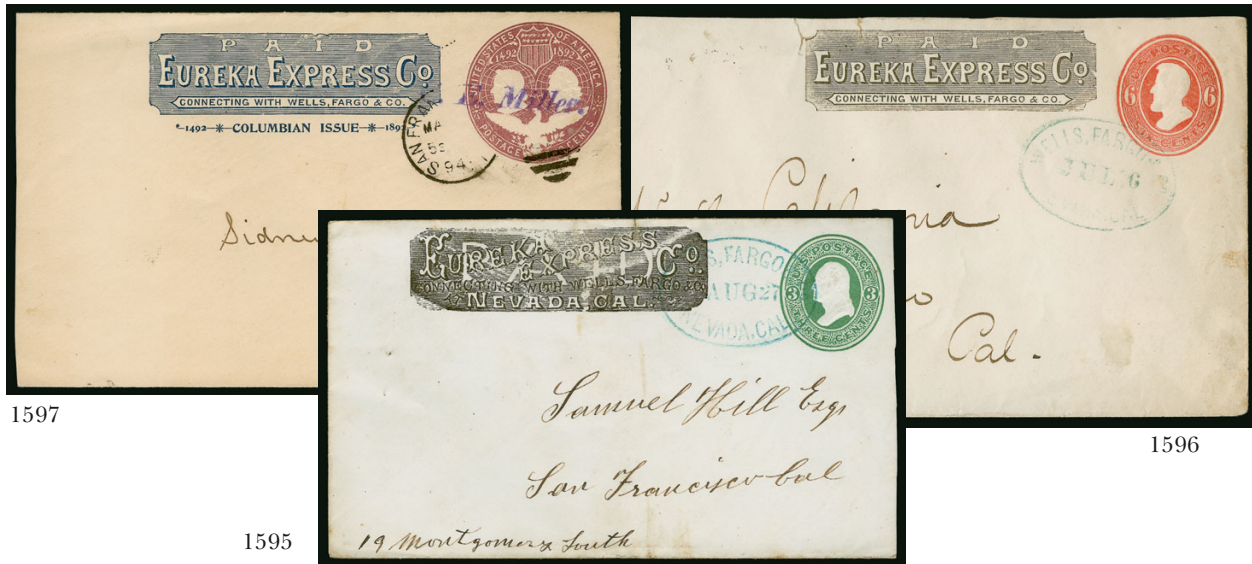 PAID
EUREKA EXPRESS CO.
CONNECTING WITH WELLS, FARGO & CO.
1492 * COLUMBIAN ISSUE * 189
UNITED STATES OF AMERICA
1492 1892
POSTAGE CENTS
Miller.
SAN FRAN
MA
94
Sidne
1597
PAID
EUREKA EXPRESS CO.
CONNECTING WITH WELLS, FARGO & CO.
U.S. POSTAGE
6 6
SIX CENTS
WELLS, FARGO
JUL 6
CAL
California
Cal.
1596
EUREKA
EXPRESS CO.
PAID
CONNECTING WITH WELLS FARGO & CO.
NEVADA, CAL.
S, FARGO
AUG 27
NEVADA, CAL
U.S. POSTAGE
3 3
THREE CENTS
Samuel Hill Esqr
San Francisco Cal
19 Montgomery South
1595